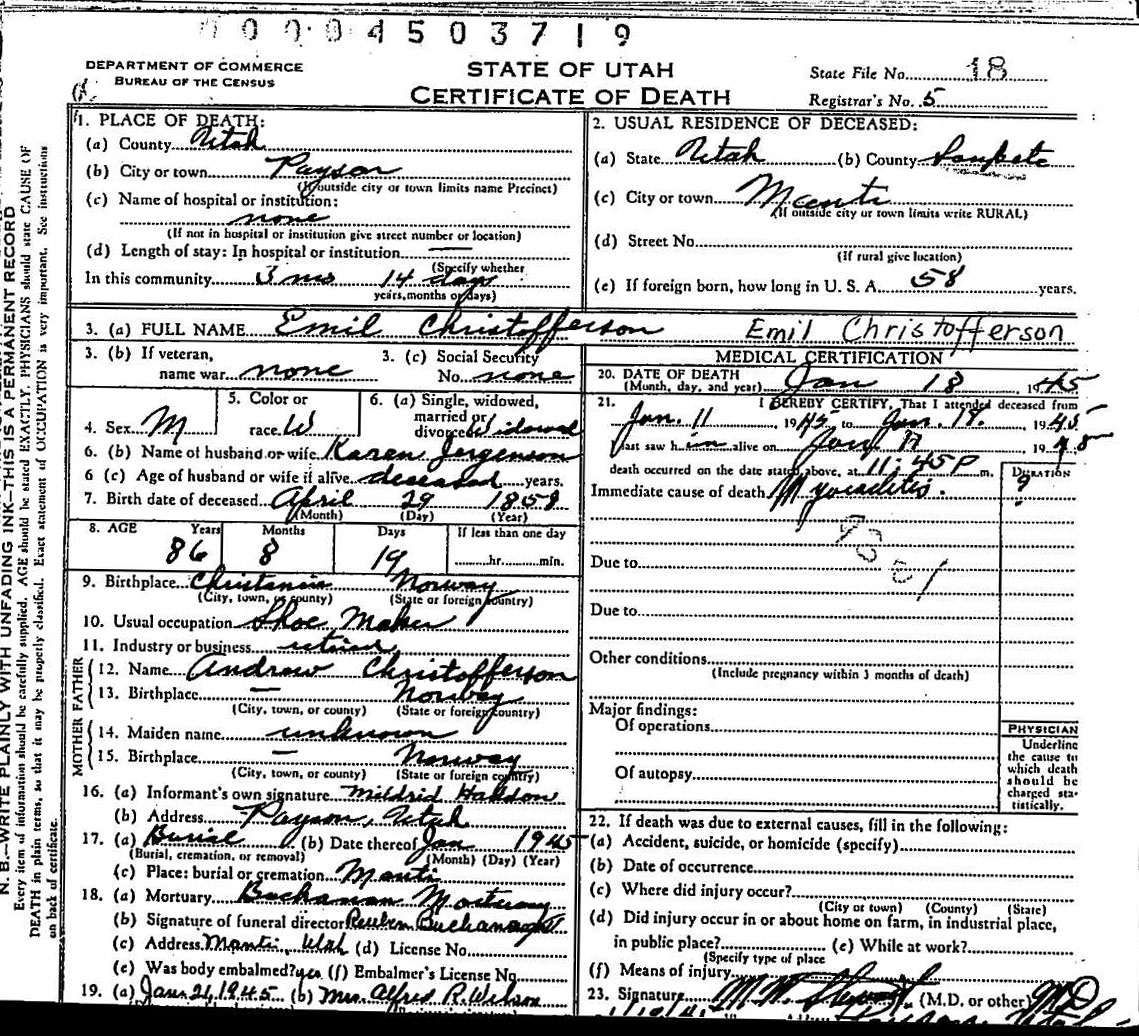 0 0 0 0 4 5 0 3 7 1 9
DEPARTMENT OF COMMERCE
BUREAU OF THE CENSUS
STATE OF UTAH
CERTIFICATE OF DEATH
State File No. 18
Registrar's No. 5
1. PLACE OF DEATH:
(a) County Utah
(b) City or town Payson
(If outside city or town limits name Precinct)
(c) Name of hospital or institution:
none
(If not in hospital or institution give street number or location)
(d) Length of stay: In hospital or institution —
(Specify whether
In this community 3 mo 14 days
years, months or days)
2. USUAL RESIDENCE OF DECEASED:
(a) State Utah (b) County Sanpete
(c) City or town Manti
(If outside city or town limits write RURAL)
(d) Street No.
(If rural give location)
(e) If foreign born, how long in U. S. A. 58 years.
3. (a) FULL NAME Emil Christofferson Emil Christofferson
3. (b) If veteran,
name war none
3. (c) Social Security
No. none
4. Sex M
5. Color or
race W
6. (a) Single, widowed,
married or
divorced Widowed
6. (b) Name of husband or wife Karen Jorgenson
6 (c) Age of husband or wife if alive deceased years.
7. Birth date of deceased April 29 1858
(Month) (Day) (Year)
8. AGE Years Months Days If less than one day
86 8 19 hr. min.
9. Birthplace Christania Norway
(City, town, or county) (State or foreign country)
10. Usual occupation Shoe Maker
11. Industry or business retired
FATHER
12. Name Andrew Christofferson
13. Birthplace — Norway
(City, town, or county) (State or foreign country)
MOTHER
14. Maiden name unknown
15. Birthplace — Norway
(City, town, or county) (State or foreign country)
16. (a) Informant's own signature Mildrid
(b) Address Payson, Utah
17. (a) Burial (b) Date thereof Jan 1945
(Burial, cremation, or removal) (Month) (Day) (Year)
(c) Place: burial or cremation Manti
18. (a) Mortuary Buchanan Mortuary
(b) Signature of funeral director Reuben Buchanan
(c) Address Manti, Utah (d) License No.
(e) Was body embalmed? yes (f) Embalmer's License No.
19. (a) Jan 21, 1945 (b) Mrs. Alfred R. Wilson
MEDICAL CERTIFICATION
20. DATE OF DEATH
(Month, day, and year) Jan 18 1945
21. I HEREBY CERTIFY, That I attended deceased from
Jan. 11 1945 to Jan. 18. 1945
last saw him alive on Jan 1945
death occurred on the date stated above, at 11:45 P m.
DURATION
Immediate cause of death Myocarditis. ?
Due to
Due to
Other conditions
(Include pregnancy within 3 months of death)
Major findings:
Of operations
Of autopsy
PHYSICIAN
Underline
the cause to
which death
should be
charged sta-
tistically.
22. If death was due to external causes, fill in the following:
(a) Accident, suicide, or homicide (specify)
(b) Date of occurrence
(c) Where did injury occur?
(City or town) (County) (State)
(d) Did injury occur in or about home on farm, in industrial place,
in public place? (e) While at work?
(Specify type of place
(f) Means of injury
23. Signature (M.D. or other) MD
N. B.—WRITE PLAINLY WITH UNFADING INK—THIS IS A PERMANENT RECORD
Every item of information should be carefully supplied. AGE should be stated EXACTLY. PHYSICIANS should state CAUSE OF
DEATH in plain terms, so that it may be properly classified. Exact statement of OCCUPATION is very important. See instructions
on back of certificate.